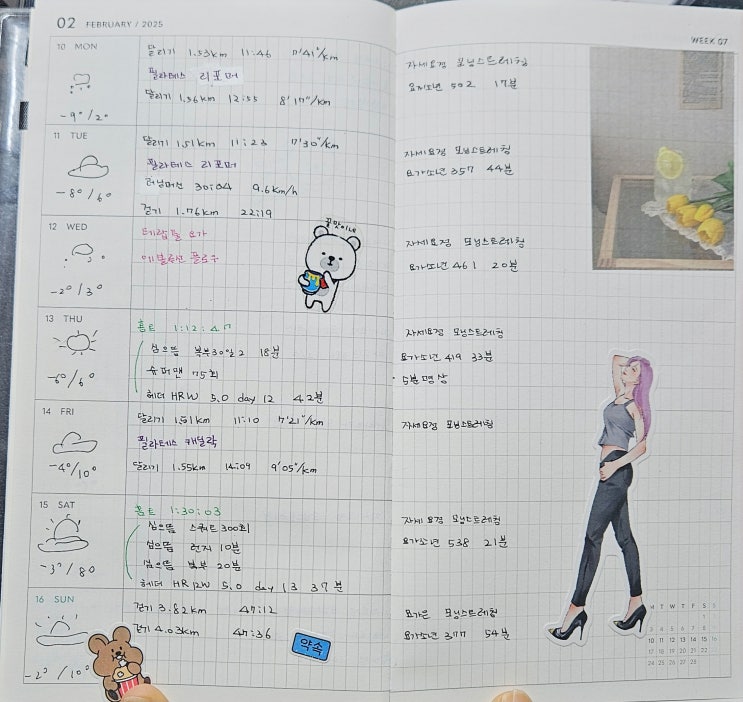 02 FEBRUARY / 2025
10 MON
-9°/2°
달리기 1.53km 11:46 7'41"/km
필라테스 리포머
달리기 1.56km 12:55 8'17"/km
11 TUE
-8°/6°
달리기 1.51km 11:23 7'30"/km
필라테스 리포머
러닝머신 30:04 9.6km/h
걷기 1.76km 22:19
12 WED
-2°/3°
테라피 요가
에볼루션 플로우
꿀맛이네
13 THU
-6°/6°
홈트 1:12:47
심으뜸 복부30일2 18분
슈퍼맨 75회
헤더 HR12W 5.0 day 12 42분
14 FRI
-4°/10°
달리기 1.51km 11:10 7'21"/km
필라테스 캐딜락
달리기 1.55km 14:09 9'05"/km
15 SAT
-3°/8°
홈트 1:30:03
심으뜸 스쿼트 300회
심으뜸 런지 10분
심으뜸 복부 20분
헤더 HR12W 5.0 day 13 37분
16 SUN
-2°/10°
걷기 3.82km 47:12
걷기 4.03km 47:36
약속
WEEK 07
자세요정 모닝스트레칭
요가소년 502 17분
자세요정 모닝스트레칭
요가소년 357 44분
자세요정 모닝스트레칭
요가소년 461 20분
자세요정 모닝스트레칭
요가소년 419 33분
5분 명상
자세요정 모닝스트레칭
자세요정 모닝스트레칭
요가소년 538 21분
요가은 모닝스트레칭
요가소년 377 54분
M T W T F S S
3 4 5 6 7 8 9
10 11 12 13 14 15 16
17 18 19 20 21 22
24 25 26 27 28